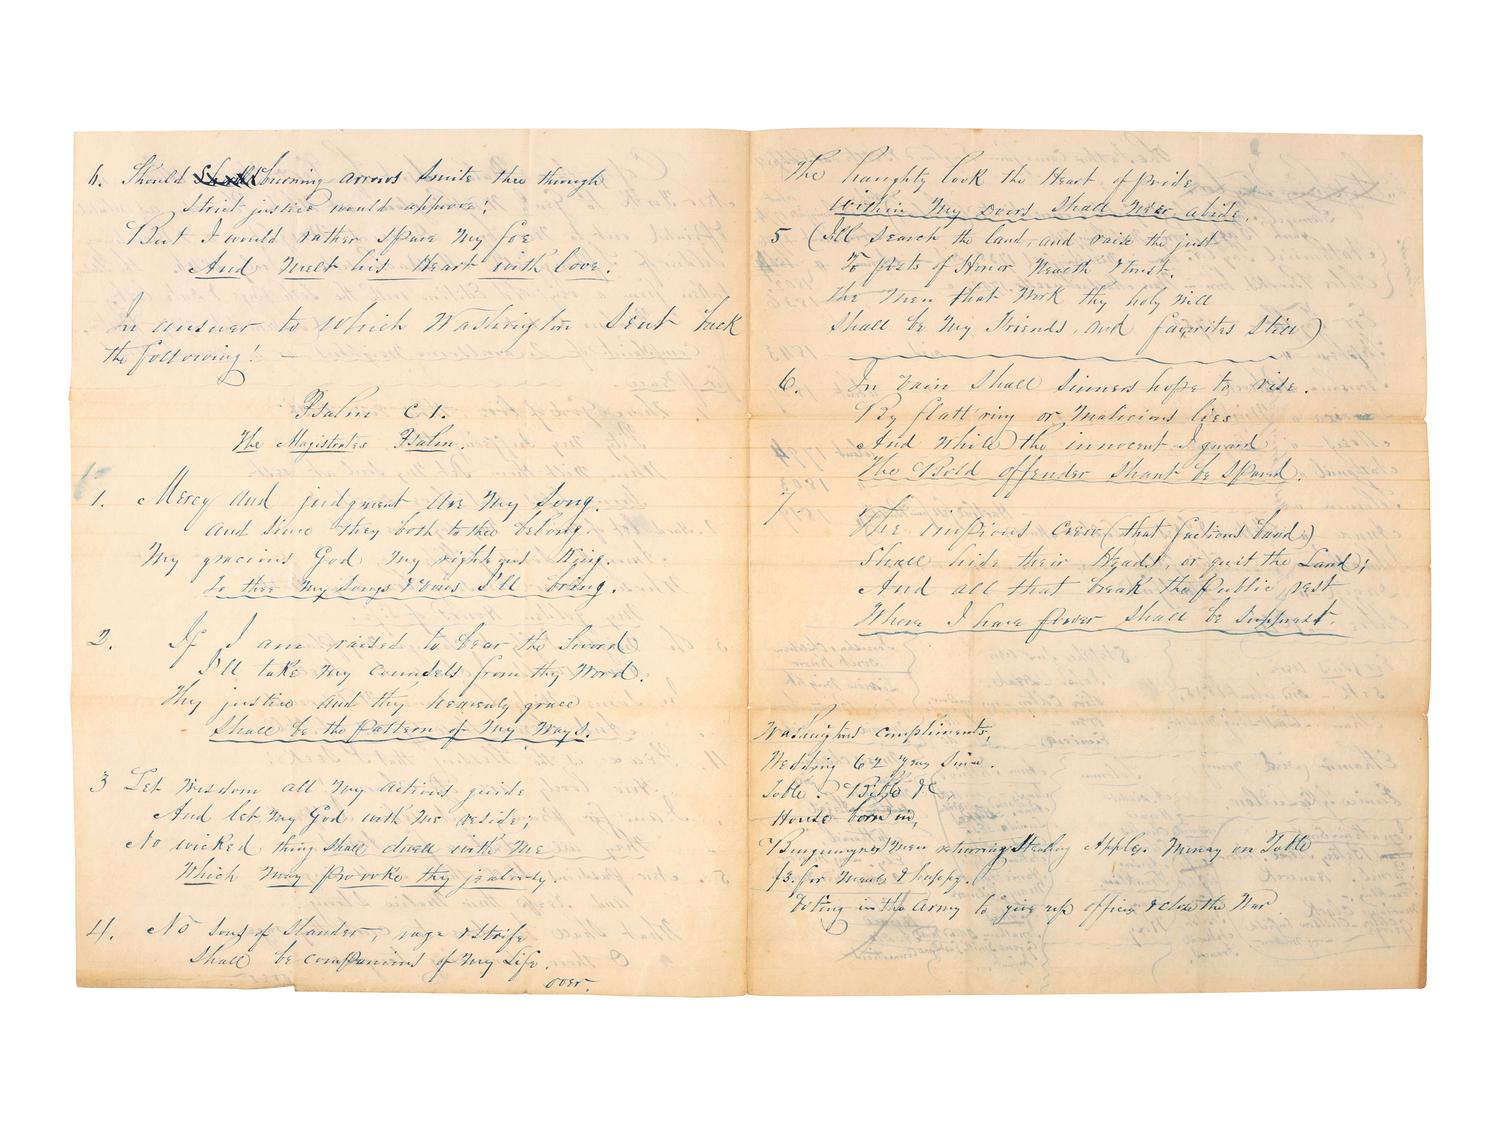 6. Should burning arrows smite thee through
Strict justice would approve;
But I would rather spare my foe
And melt his Heart with love.
In answer to which Washington Sent back
the following!
Psalm C1.
The Magistrates Psalm.
1. Mercy and judgment are my Song.
and since they both to thee belong.
My gracious God my righteous King.
To thee my Songs & vows I'll bring.
2. If I am raised to bear the Sword
I'll take my counsels from thy Word.
Thy justice and thy heavenly grace
Shall be the pattern of my Ways.
3 Let Wisdom all my actions guide
And let my God with me reside;
No wicked thing shall dwell with me
Which may provoke thy jealousy.
4. No sons of Slander, rage & Strife
Shall be companions of my Life.
over.
The haughty look the Heart of pride
within my doors shall never abide.
5 (I'll Search the land, and raise the just
To posts of Honor Wealth & trust.
The Men that Work thy holy will
Shall be my Friends and favorites Still)
6. In vain shall Sinners hope to rise.
By flatt'ring or malicious lies
And while the innocent I guard
The Bold offender shant be spared.
7 The impious crew (that factious band)
Shall hide their Heads, or quit the Land;
And all that break the Public rest
Where I have power shall be supprest.
Washingtons compliments,
Wedding 62 years Since.
Table. Bible &c
House born in,
Burgoynes Men returning Stealing Apples. Money on Table
f3. for Meals & happy.
Voting in the Army to give up offices & close the War